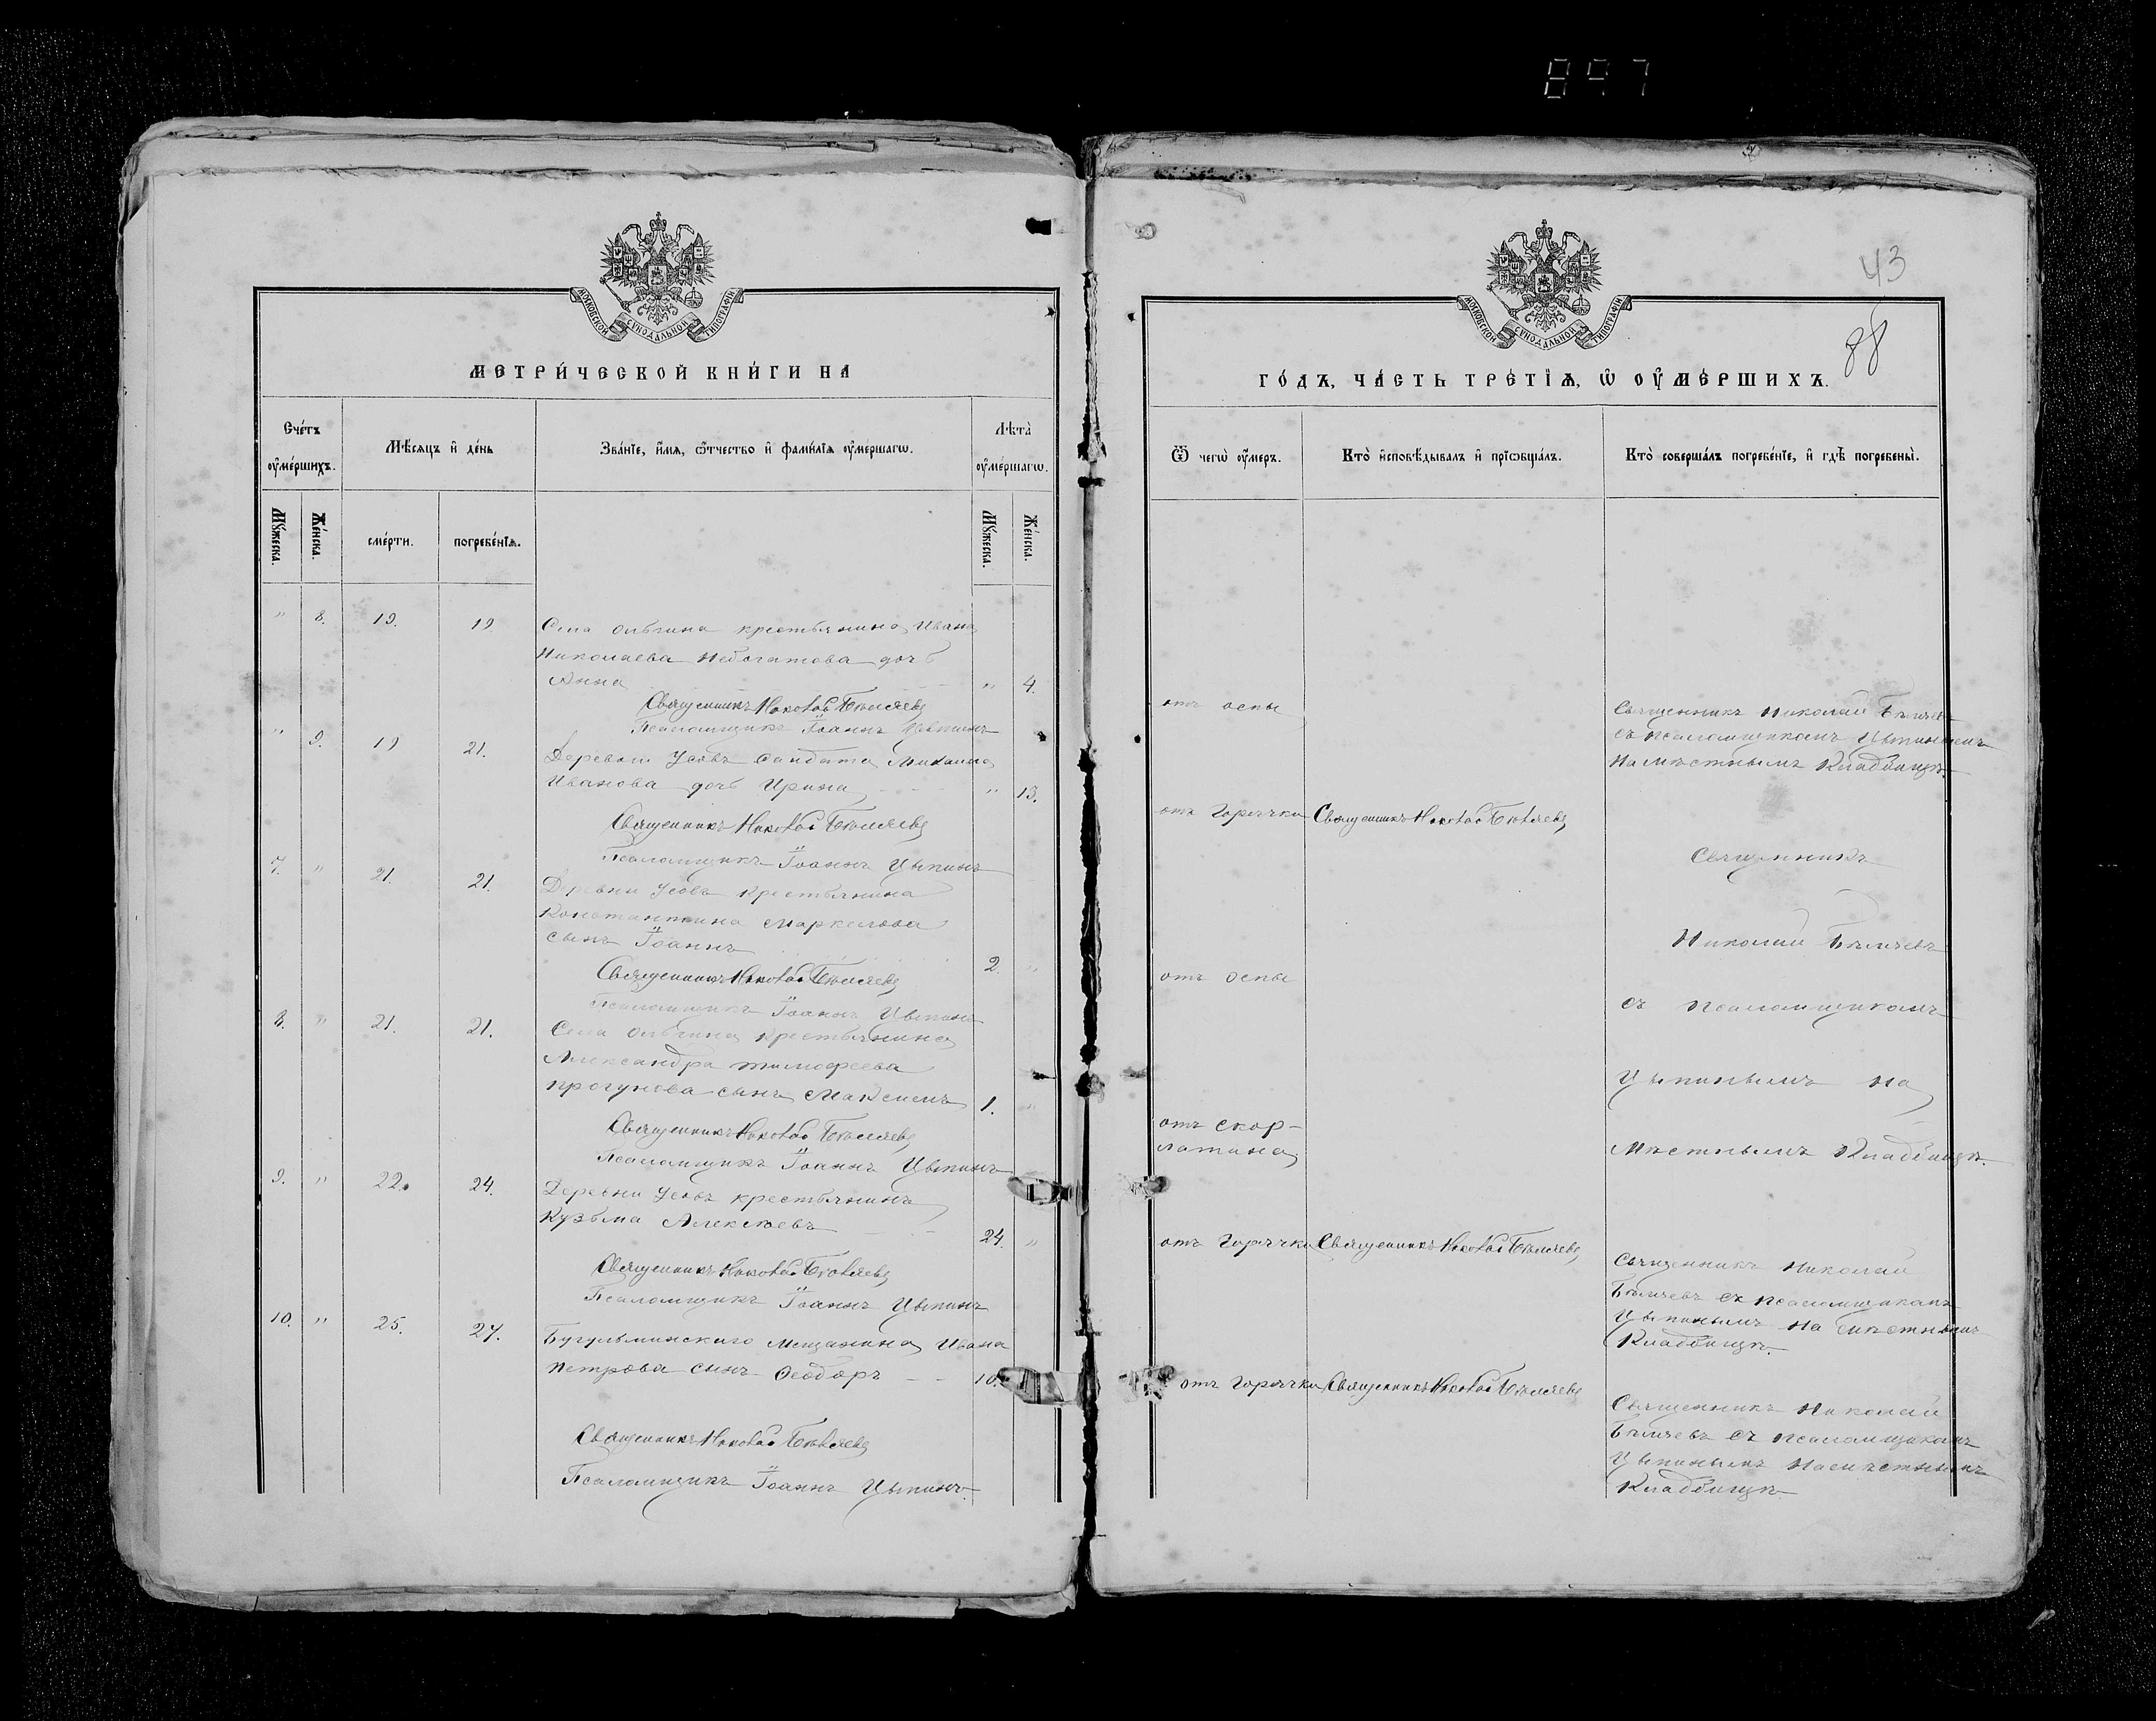 897
МОСКОВСКОЙ СѴНОДАЛЬНОЙ ТИПОГРАФІИ
МЕТРИ́ЧЕСКОЙ КНИ́ГИ НА
Сче́тъ ᲂу҆ме́ршихъ.
Мѣ́сяцъ и҆ де́нь
Зва́нїе, и҆́мѧ, ѻ҆́тчество и҆ фами́лїѧ ᲂу҆ме́ршагѡ.
Лѣта̀ ᲂу҆ме́ршагѡ.
Мꙋ́жеска.
Же́нска.
сме́рти.
погребе́нїѧ.
Мꙋ́жеска.
Же́нска.
" 8. 19. 19. Села Ольгина крестьянина Ивана
Николаева Небогатова дочь
Анна " 4.
Священникъ Николай Бѣляевъ
Псаломщикъ Іоаннъ Цыпинъ
" 9. 19 21. Деревни Усовъ солдата Михаила
Иванова дочь Ирина " 13.
Священникъ Николай Бѣляевъ
Псаломщикъ Іоаннъ Цыпинъ
7. " 21. 21. Деревни Усовъ крестьянина
Константина Маркелова
сынъ Іоаннъ 2. "
Священникъ Николай Бѣляевъ
Псаломщикъ Іоаннъ Цыпинъ
8. " 21. 21. Села Ольгина крестьянина
Александра Тимофеева
Прогунова сынъ Максимъ 1. "
Священникъ Николай Бѣляевъ
Псаломщикъ Іоаннъ Цыпинъ
9. " 22. 24. Деревни Усовъ крестьянинъ
Кузьма Алексѣевъ 24. "
Священникъ Николай Бѣляевъ
Псаломщикъ Іоаннъ Цыпинъ
10. " 25. 27. Бугульминскаго мещанина Ивана
Петрова сынъ Ѳеодоръ 10.
Священникъ Николай Бѣляевъ
Псаломщикъ Іоаннъ Цыпинъ
43
88
МОСКОВСКОЙ СѴНОДАЛЬНОЙ ТИПОГРАФІИ
ГО́ДЪ, ЧА́СТЬ ТРЕ́ТЇѦ, Ѡ҆ ОУ҆МЕ́РШИХЪ.
Ѿ чегѡ̀ ᲂу҆́меръ.
Кто̀ и҆сповѣ́дывалъ и҆ прїѡбща́лъ.
Кто̀ соверша́лъ погребе́нїе, и҆ гдѣ̀ погребены̀.
отъ оспы
Священникъ Николай Бѣляевъ
съ псаломщикомъ Цыпинымъ
на мѣстномъ кладбищѣ
отъ горячки Священникъ Николай Бѣляевъ
Священникъ
Николай Бѣляевъ
отъ оспы
съ псаломщикомъ
Цыпинымъ на
отъ скор-
латина
мѣстномъ кладбищѣ.
отъ горячки Священникъ Николай Бѣляевъ
Священникъ Николай
Бѣляевъ съ псаломщикомъ
Цыпинымъ на мѣстномъ
кладбищѣ.
отъ горячки Священникъ Николай Бѣляевъ
Священникъ Николай
Бѣляевъ съ псаломщикомъ
Цыпинымъ на мѣстномъ
кладбищѣ